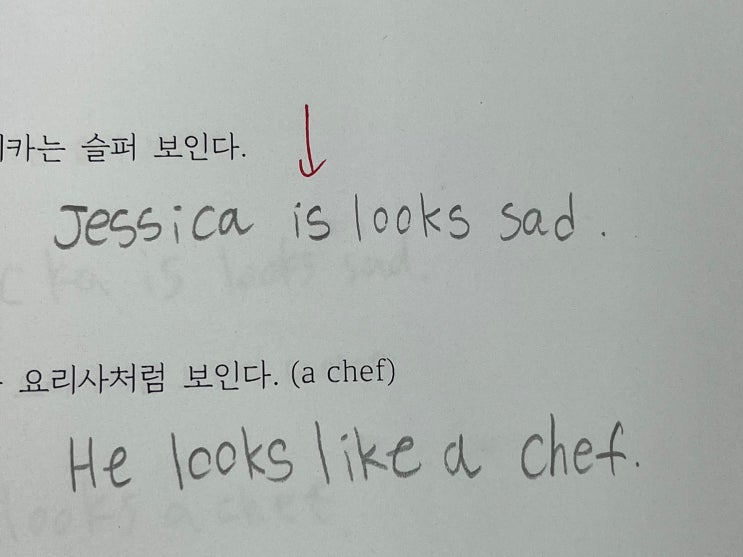 카는 슬퍼 보인다.
Jessica is looks sad.
요리사처럼 보인다. (a chef)
He looks like a chef.